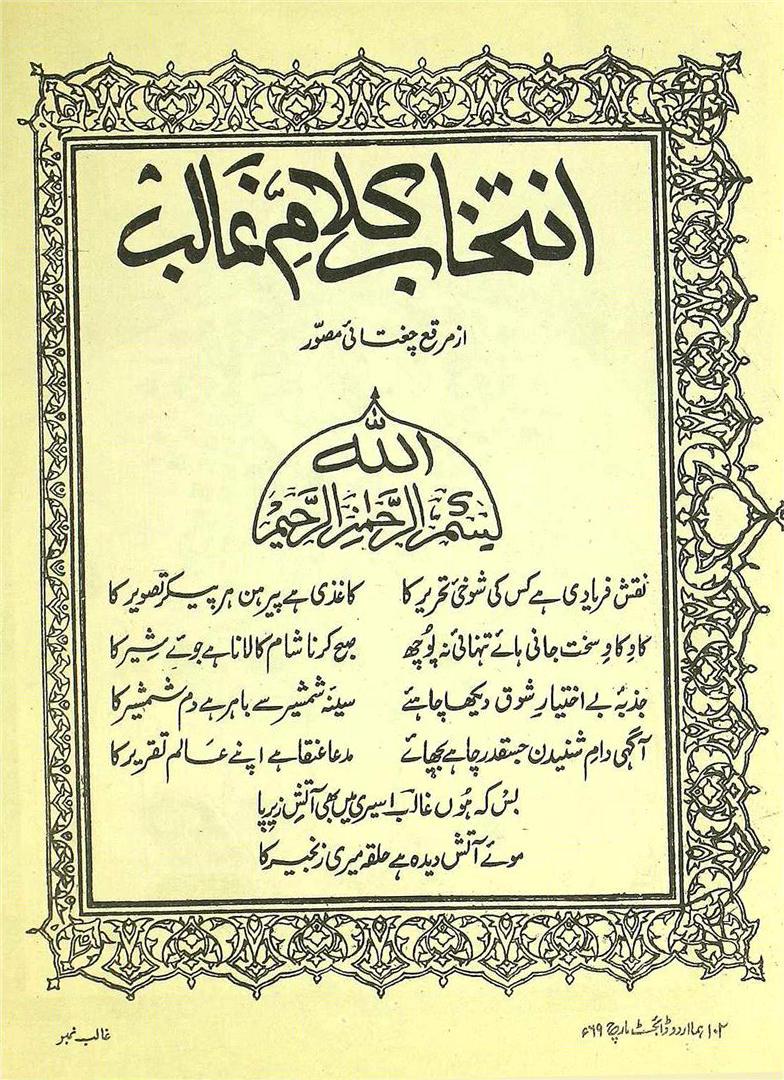 انتخاب کلامِ غالب
از مرقع چغتائی مصوّر
اللہ
بسم الرحمٰن الرحیم
نقش فریادی ہے کس کی شوخیٔ تحریر کا کاغذی ہے پیرہن ہر پیکرِ تصویر کا
کاوِ کاوِ سخت جانی ہائے تنہائی نہ پُوچھ صبح کرنا شام کا لانا ہے جوئے شِیر کا
جذبۂ بے اختیارِ شوق دیکھا چاہئے سینۂ شمشیر سے باہر ہے دم شمشیر کا
آگہی دامِ شنیدن جسقدر چاہے بچھائے مدعا عنقا ہے اپنے عالم تقریر کا
بس کہ ہُوں غالبؔ اسیری میں بھی آتش زیرِپا
موئے آتش دیدہ ہے حلقہ میری زنجیر کا
۱۰۲ ہما اردو ڈائجسٹ مارچ ۶۹ء
غالب نمبر